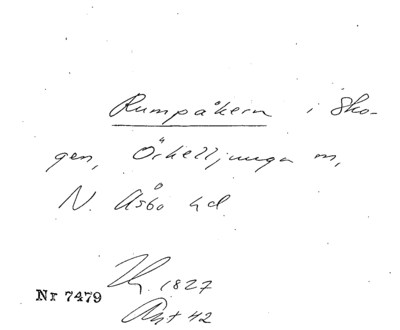 Rumpåkern i Sko-
gen, Örkelljunga sn,
N. Åsbo hd
1827
Nr 7479
Akt 42